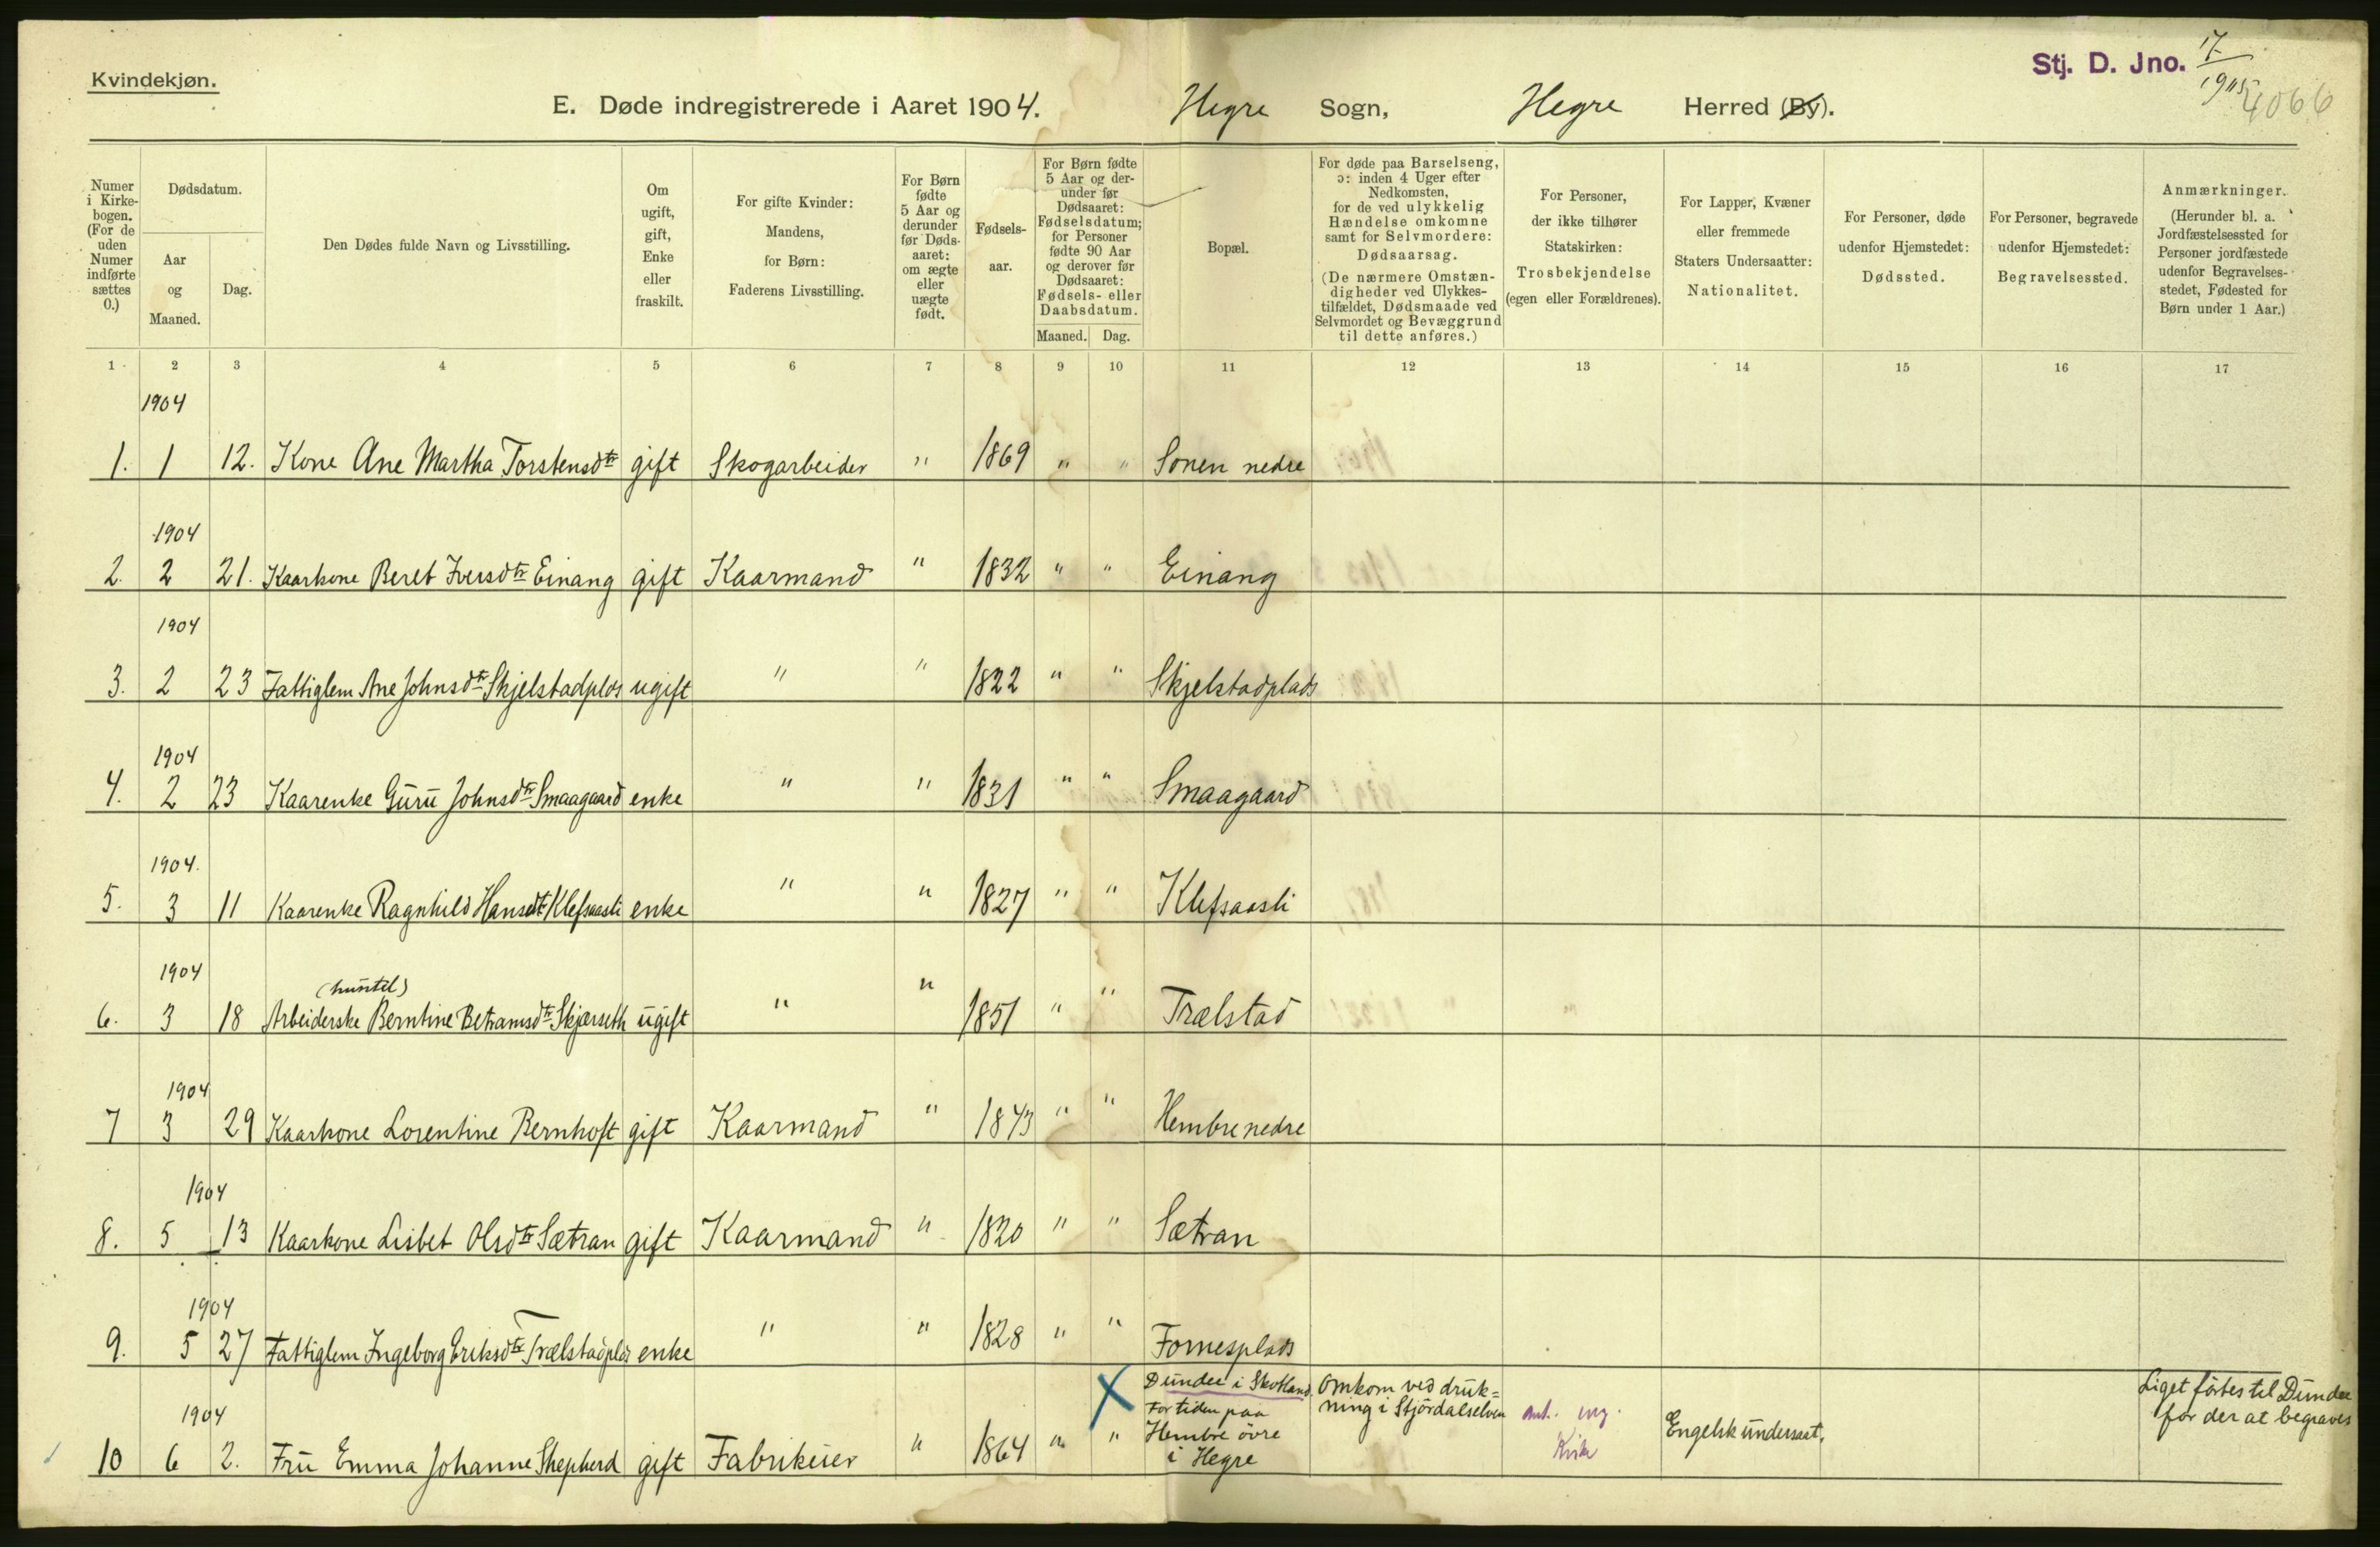 Kvindekjøn.
Stj. D. Jno. 17/1905
4066
E. Døde indregistrerede i Aaret 1904. Hegre Sogn, Hegre Herred (By).
Numer i Kirkebogen. (For de uden Numer indførte sættes 0.)
Dødsdatum.
Aar og Maaned.
Dag.
Den Dødes fulde Navn og Livsstilling.
Om ugift, gift, Enke eller fraskilt.
For gifte Kvinder: Mandens, for Børn: Faderens Livsstilling.
For Børn fødte 5 Aar og derunder før Dødsaaret: om ægte eller uægte født.
Fødselsaar.
For Børn fødte 5 Aar og derunder før Dødsaaret: Fødselsdatum; for Personer fødte 90 Aar og derover før Dødsaaret: Fødsels- eller Daabsdatum.
Maaned. Dag.
Bopæl.
For døde paa Barselseng, ɔ: inden 4 Uger efter Nedkomsten, for de ved ulykkelig Hændelse omkomne samt for Selvmordere: Dødsaarsag. (De nærmere Omstændigheder ved Ulykkestilfældet, Dødsmaade ved Selvmordet og Bevæggrund til dette anføres.)
For Personer, der ikke tilhører Statskirken: Trosbekjendelse (egen eller Forældrenes).
For Lapper, Kvæner eller fremmede Staters Undersaatter: Nationalitet.
For Personer, døde udenfor Hjemstedet: Dødssted.
For Personer, begravede udenfor Hjemstedet: Begravelsessted.
Anmærkninger. (Herunder bl. a. Jordfæstelsessted for Personer jordfæstede udenfor Begravelsesstedet, Fødested for Børn under 1 Aar.)
1 2 3 4 5 6 7 8 9 10 11 12 13 14 15 16 17
1904
1. 1 12. Kone Ane Martha Torstensdtr gift Skogarbeider " 1869 " " Sonen nedre
1904
2. 2 21. Kaarkone Beret Iversdtr Einang gift Kaarmand " 1832 " " Einang
1904
3. 2 23 Fattiglem Ane Johnsdtr Skjelstadplds ugift " " 1822 " " Skjelstadplads
1904
4. 2 23 Kaarenke Guru Johnsdtr Smaagaard enke " " 1831 " " Smaagaard
1904.
5. 3 11 Kaarenke Ragnhild Hansdtr Klefsaasli enke " " 1827 " " Klefsaasli
1904
(huntel)
6. 3 18 Arbeiderske Berntine Betramsdtr Skjærseth ugift " " 1851 " " Trælstad
1904
7 3 29 Kaarkone Lorentine Bernhoft gift Kaarmand " 1843 " " Hembre nedre
1904
8. 5 13 Kaarkone Lisbet Olsdtr Sætran gift Kaarmand " 1820 " " Sætran
1904
9. 5 27 Fattiglem Ingeborg Eriksdtr Trælstadplds enke " " 1828 " " Fornesplads
1904
10 6 2. Fru Emma Johanne Shepherd gift Fabrikeier " 1864 " "
Dundee i Skotland.
For tiden paa
Hembre övre
i Hegre
Omkom ved druk=
ning i Stjördalselven
ant. eng.
Kirke
Engelsk undersaat.
Liget förtes til Dundee
for der at begraves